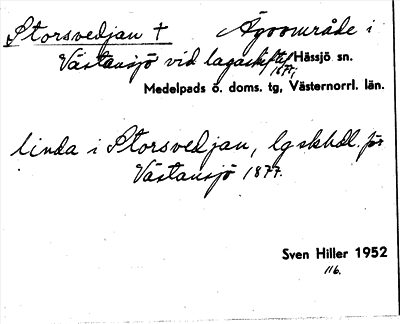 Storsvedjan † Ägoområde i
Västansjö vid lagaskifte Hässjö sn.
1877;
Medelpads ö. doms. tg, Västernorrl. län.
linda i Storsvedjan, lgskhdl. för
Västansjö 1877.
Sven Hiller 1952
116.